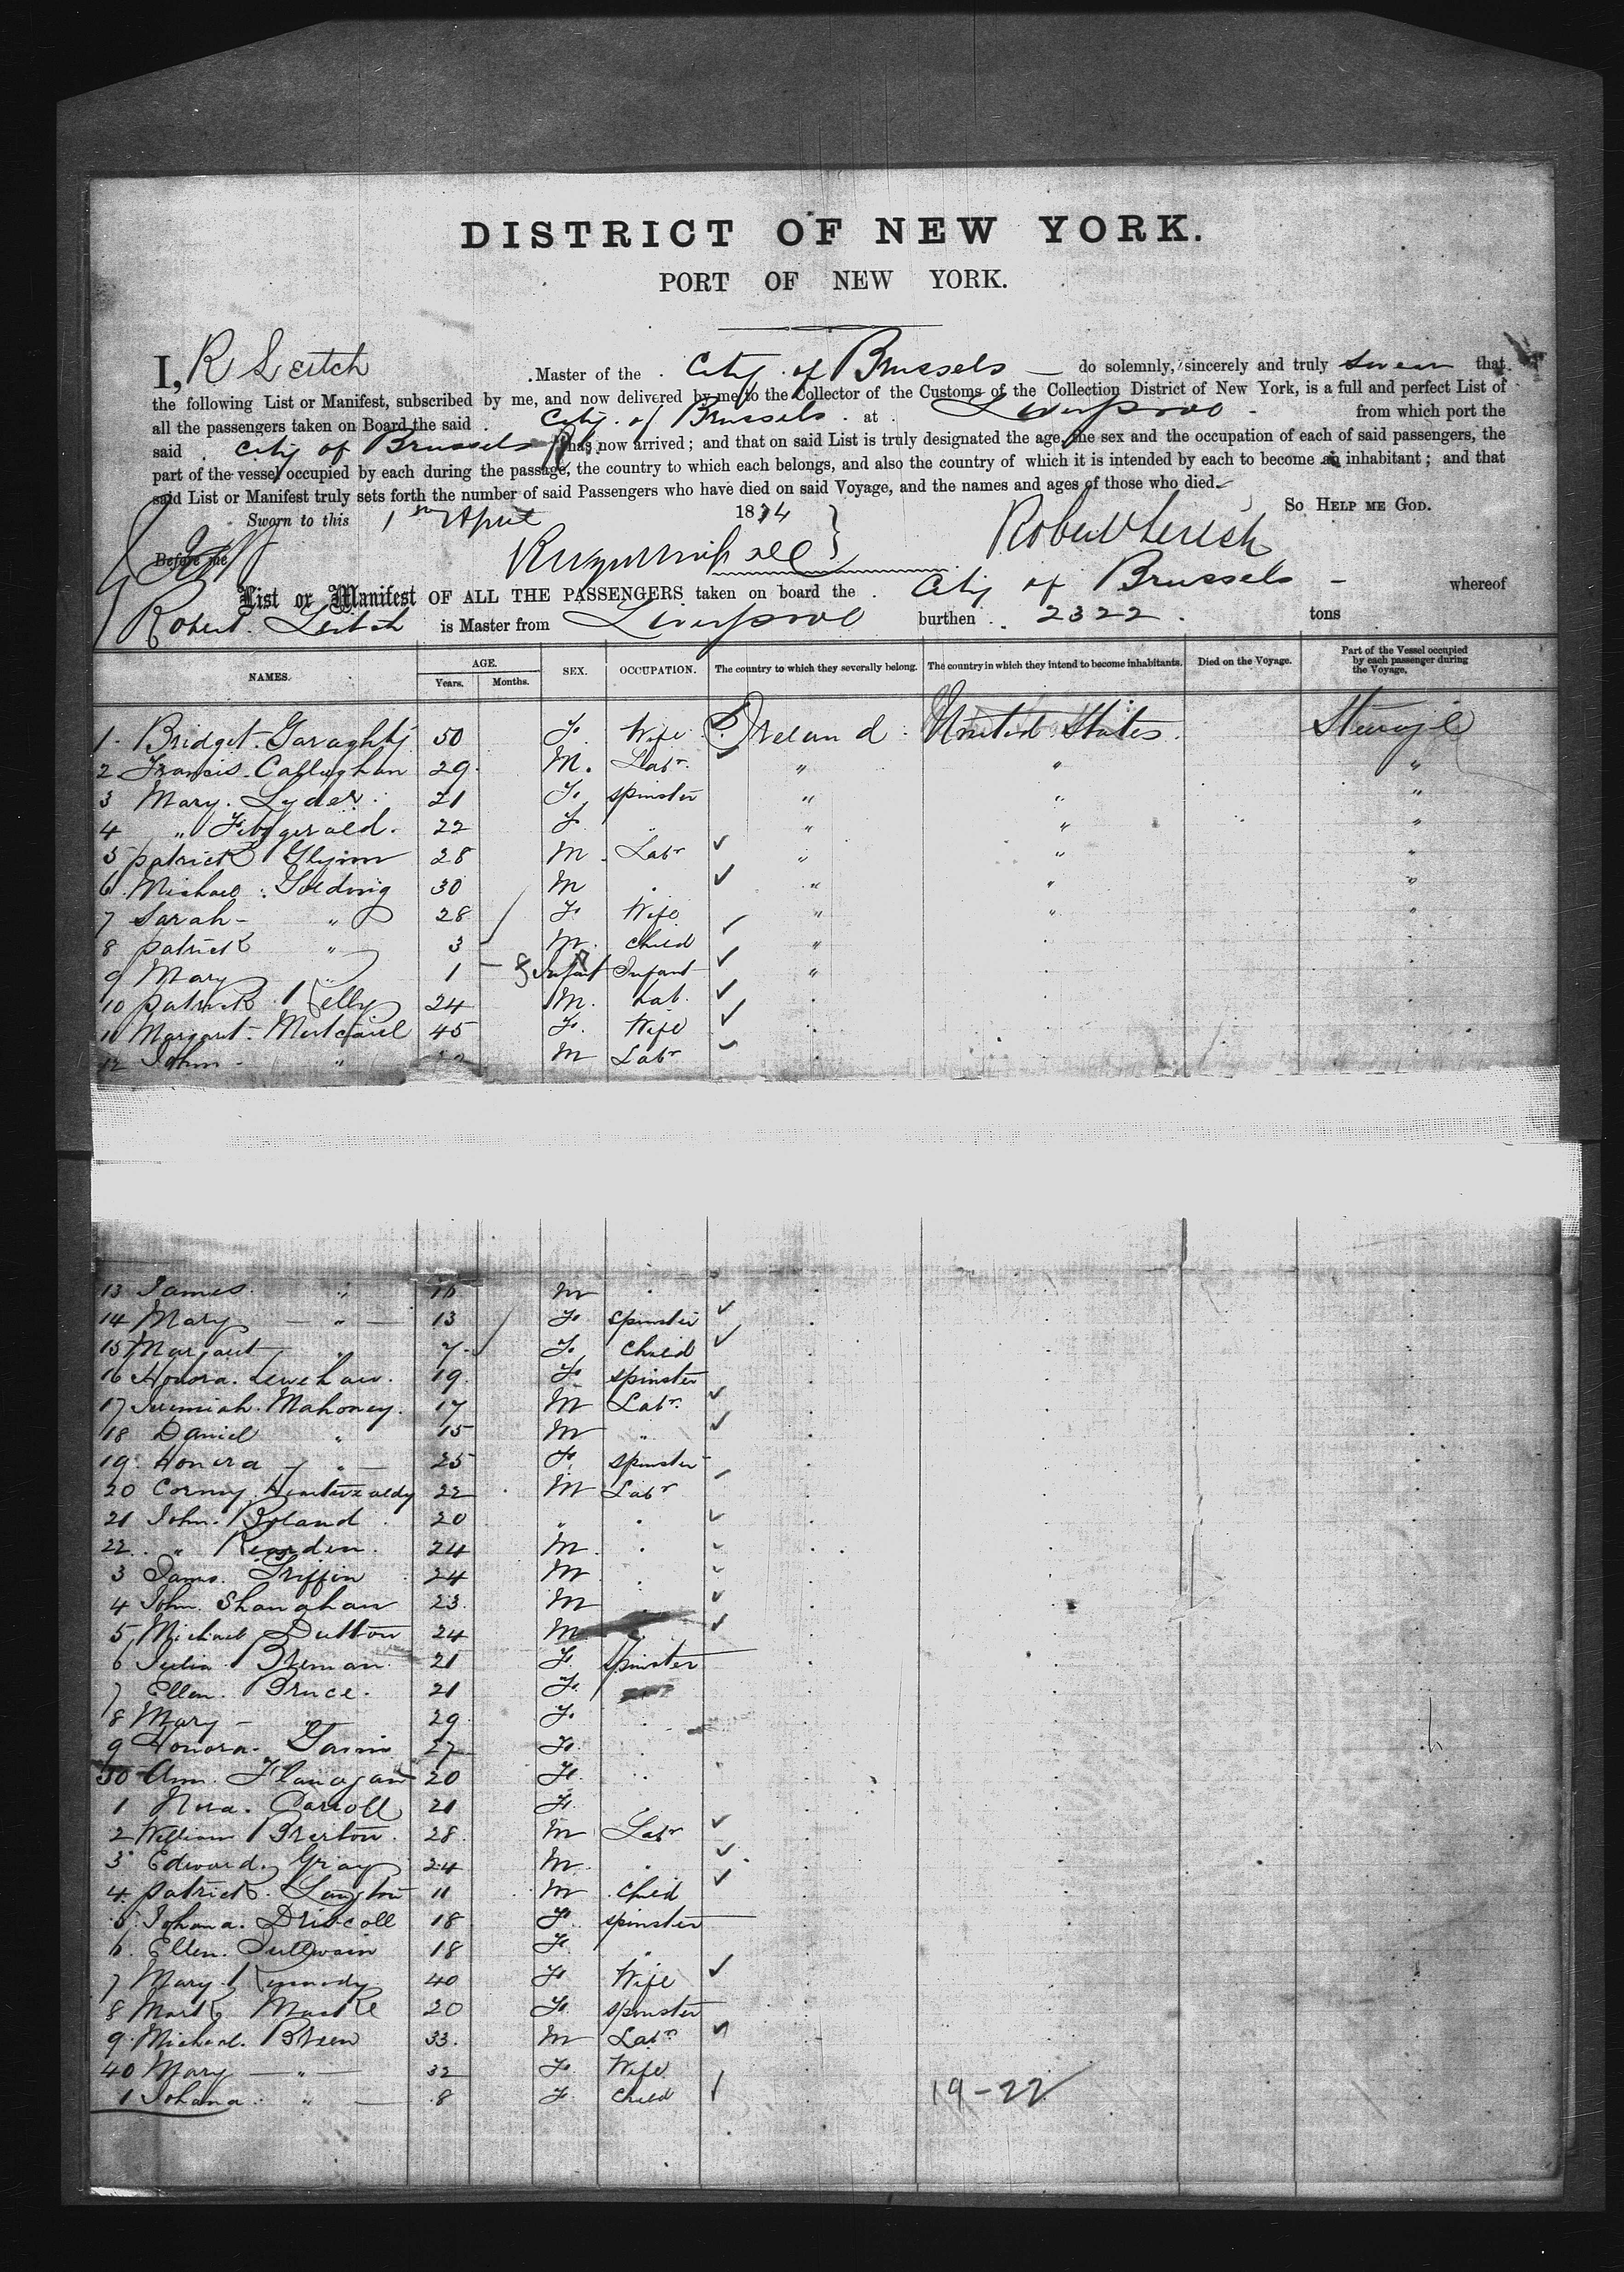 DISTRICT OF NEW YORK.
PORT OF NEW YORK.
I, R Leitch Master of the City of Brussels do solemnly, sincerely and truly swear that
the following List or Manifest, subscribed by me, and now delivered by me to the Collector of the Customs of the Collection District of New York, is a full and perfect List of
all the passengers taken on Board the said City of Brussels at Liverpool from which port the
said City of Brussels has now arrived; and that on said List is truly designated the age, the sex and the occupation of each of said passengers, the
part of the vessel occupied by each during the passage, the country to which each belongs, and also the country of which it is intended by each to become an inhabitant; and that
said List or Manifest truly sets forth the number of said Passengers who have died on said Voyage, and the names and ages of those who died.
So HELP ME GOD.
Sworn to this 1 April 1874
Robert Leitch
Before me
List or Manifest OF ALL THE PASSENGERS taken on board the City of Brussels whereof
Robert Leitch is Master from Liverpool burthen 2322 tons
NAMES. AGE. Years. Months. SEX. OCCUPATION. The country to which they severally belong. The country in which they intend to become inhabitants. Died on the Voyage. Part of the Vessel occupied by each passenger during the Voyage.
1 Bridget Garaghty 50 F Wife Ireland United States Steerage
2 Francis Callaghan 29 M. Labr. " " "
3 Mary. Lyder 21 F spinster " " "
4 " Fitzgerald. 22 F " " " "
5 patrick Glynn 28 M Labr " " "
6 Michael Golding 30 M " " "
7 Sarah - " 28 F Wife " " "
8 patrick " 3 M child "
9 Mary " 1 Infant Infant "
10 patrick Kelly 24 M. Lab.
11 Margaret 45 F. Wife
12 John - " M Labr
13 James " 16 M
14 Mary - " - 13 F spinster
15 Margaret " 7 F. Child
16 Honora. 19 F spinster
17 Jeremiah Mahoney. 17 M Labr.
18 Daniel " 15 M "
19 Honora - " - 25 F spinster
20 Corny 22 M Labr
21 John. Boland 20 "
22 " Reardin 24 M.
3 James. Griffin 24 M
4 John. Shanahan 23. M
5 Michael Dutton 24 M
6 Julia Breman 21 F. spinster
7 Ellen. Bruce. 21 F.
8 Mary - " 29 F.
9 Honora. 27 F.
30 Ann. Flanagan 20 F.
1 Nora. Carroll 21 F.
2 William Brerton. 28 M Labr
3 Edward Gray 24 M.
4 patrick. Langton 11 M child
5 Johana. Driscoll 18 F. spinster
6. Ellen. 18 F.
7 Mary Kennedy 40 F Wife
8 20 F. spinster
9 Micheal. Breen 33. M Labr.
40 Mary - " - 32 F. Wife
1 Johana " - 8 F. child
19-22